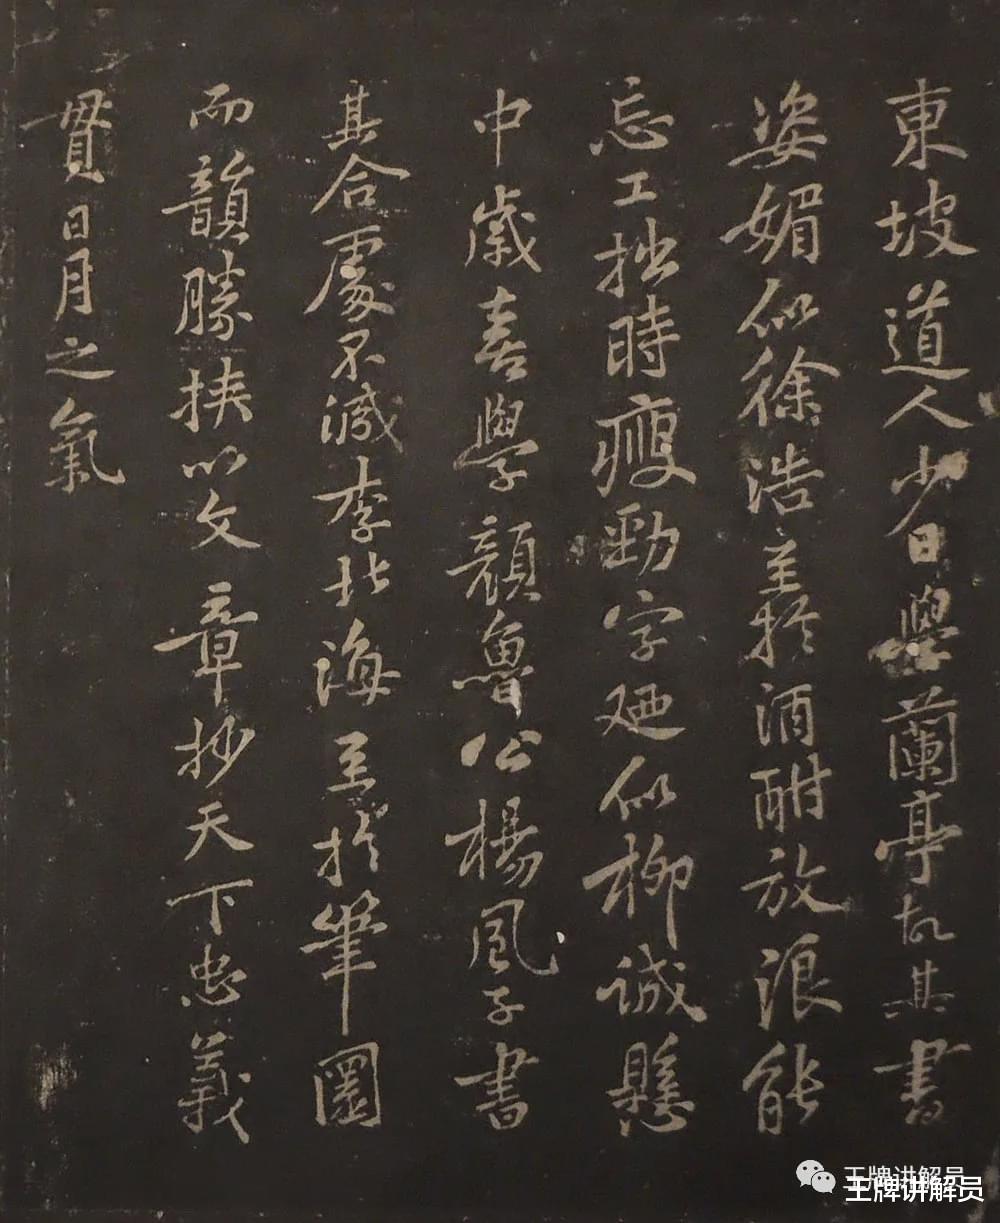 東坡道人少日學蘭亭故其書
姿媚似徐浩至於酒酣放浪能
忘工拙時瘦勁字廼似柳誠懸
中歲喜學顏魯公楊風子書
其合處不減李北海至於筆圜
而韻勝挾以文章抄天下忠義
貫日月之氣
王牌讲解员
王牌讲解员